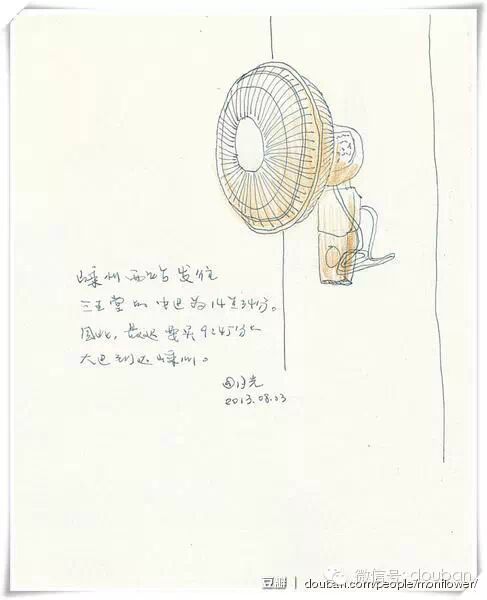 嵊州西站发往
三王堂的中巴为14点34分。
因此，最迟要买9:45分的
大巴到达嵊州。
月光
2013.08.23
微信号: douban
豆瓣 | douban.com/people/monflower/